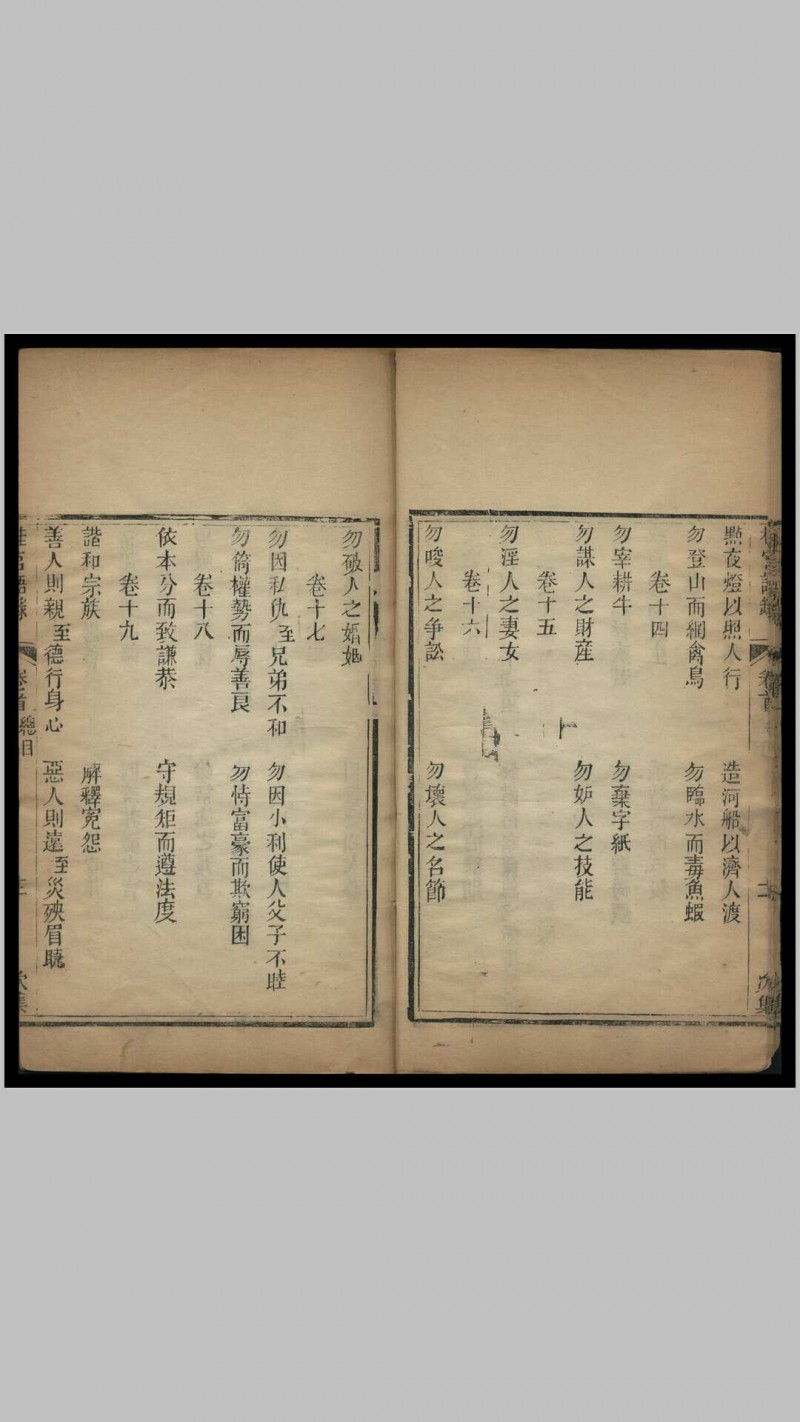 點夜燈以照人行　造河船以濟人渡
勿登山而網禽鳥　勿臨水而毒魚蝦
卷十四
勿宰耕牛　勿棄字紙
勿謀人之財產　勿妒人之技能
卷十五
勿淫人之妻女
卷十六
勿唆人之争訟　勿壞人之名節
勿破人之婚姻
卷十七
勿因私仇至兄弟不和　勿因小利使人父子不睦
勿倚權勢而辱善良　勿恃富豪而欺窮困
卷十八
依本分而致謙恭　守規矩而遵法度
卷十九
諧和宗族　解釋冤怨
善人則親至德行身心　惡人則遠至災殃眉睫
卷首 總目